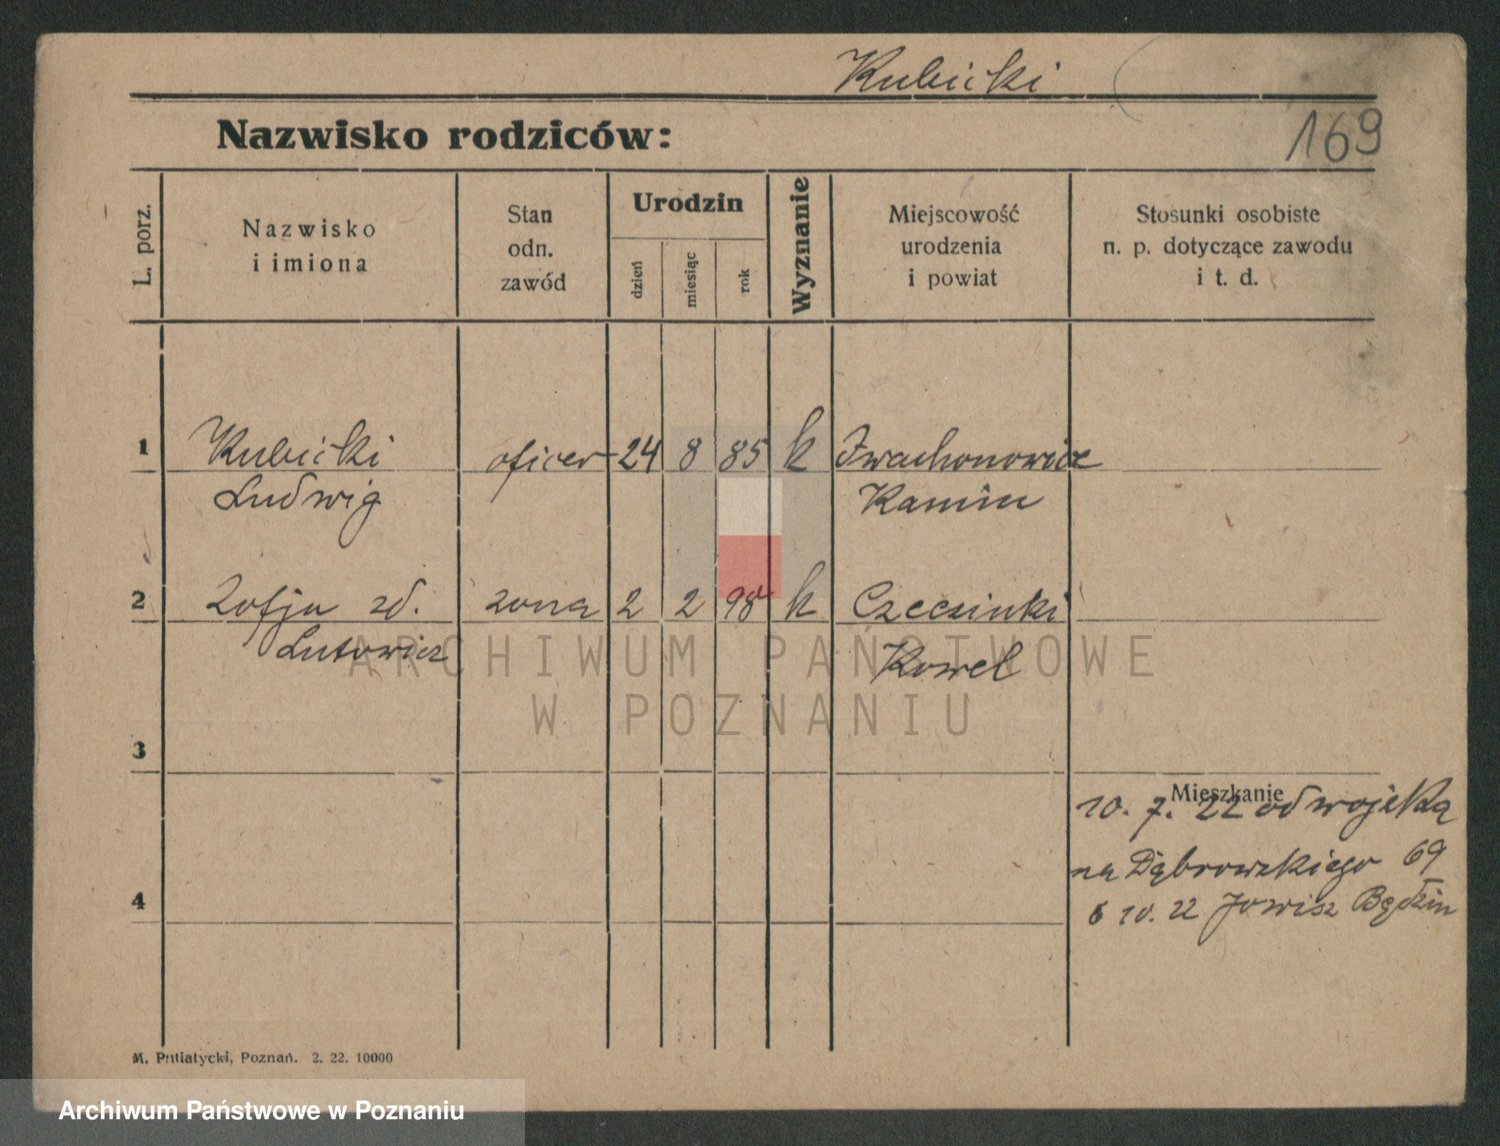 Kubicki
169
Nazwisko rodziców:
L. porz.
Nazwisko
i imiona
Stan
odn.
zawód
Urodzin
dzień
miesiąc
rok
Wyznanie
Miejscowość
urodzenia
i powiat
Stosunki osobiste
n. p. dotyczące zawodu
i t. d.
1 Kubicki oficer 24 8 85 k Iwachonowice
Ludwig Kamin
2 Zofja zd. zona 2 2 98 k
Lutowicz Kowel
3
Mieszkanie
10. 7. 22 od wojska
na Dąbrowskiego 69
4
6 10. 22 Będzin
M. Putiatycki, Poznań. 2. 22. 10000
ARCHIWUM PAŃSTWOWE
W POZNANIU
Archiwum Państwowe w Poznaniu